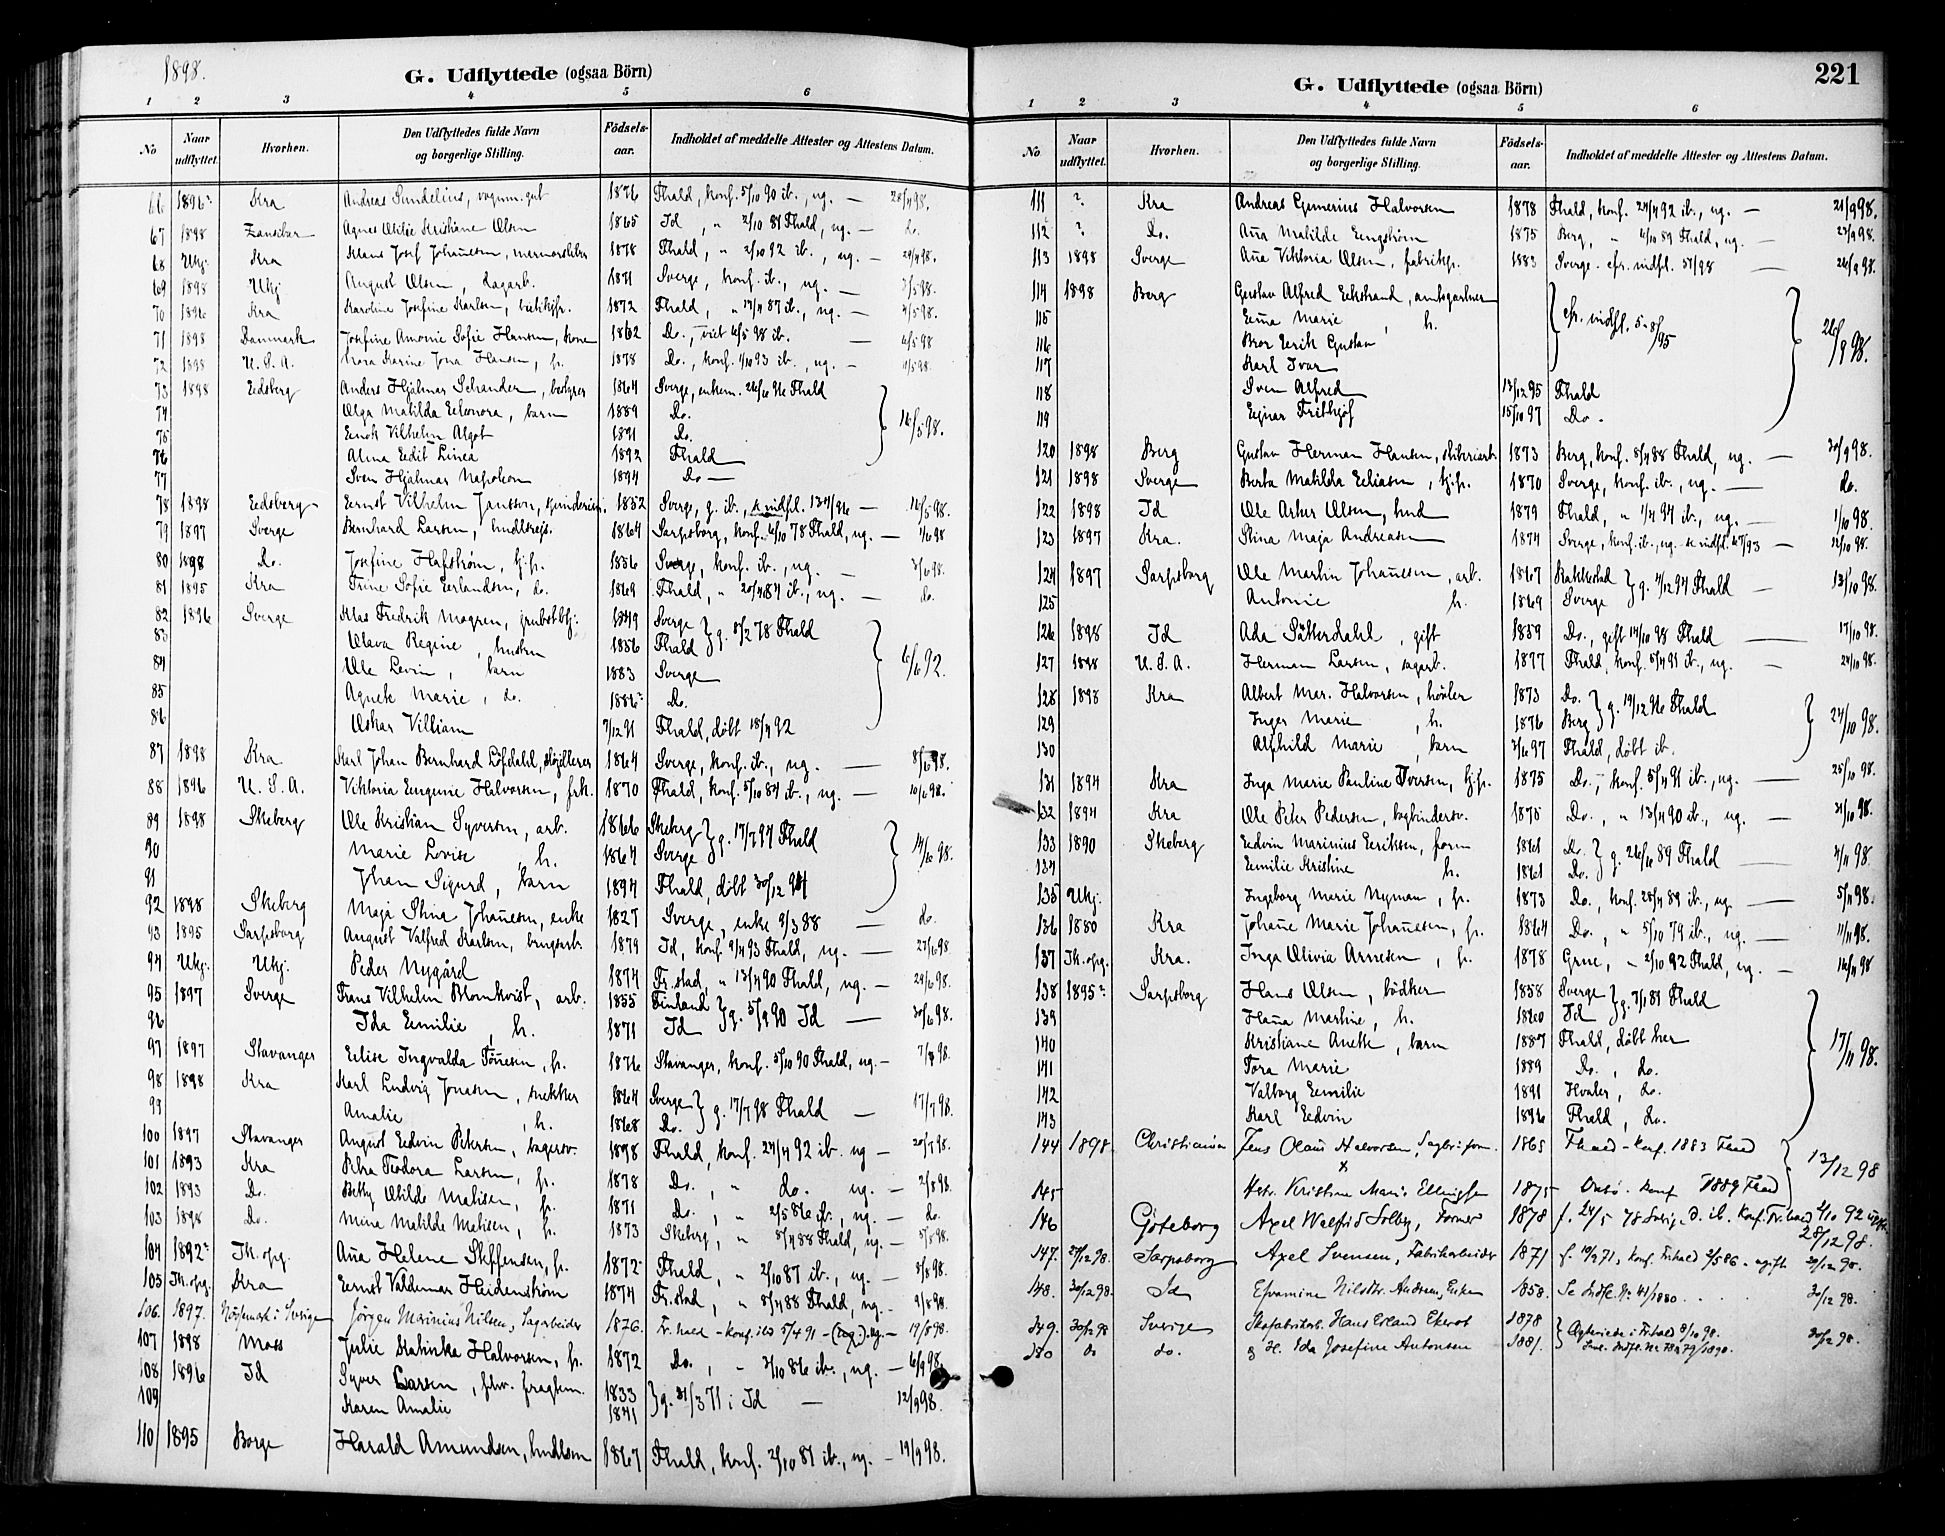 1898.
G. Udflyttede (ogsaa Börn)
1 2 3 4 5 6
No Naar udflyttet. Hvorhen. Den Udflyttedes fulde Navn og borgerlige Stilling. Födsels-aar. Indholdet af meddelte Attester og Attestens Datum.
66 1896? Kra Andreas Sundelius, 1876 Fhald, konf. 5/10 90 ib., ug. — 28/4 98.
67 1898 Zansibar Agnes Otilie Kristiane Olsen 1865 Id „ 2/10 81 Fhald, ug. — do.
68 Ukj. Kra Klaus Josef Johan̄esen, 1878 Fhald, „ 2/10 92 ib., ug. — 29/4 98.
69 1898 Ukj August Olsen, dagarb. 1871 Sverge, konf. ib., ug. — 2/5 98.
70 1896 Kra Karoline Josefine Karlsen, 1872 Fhald, „ 17/4 87 ib., ug. — 4/5 98.
71 1898 Danmark Josefine Amonie Sofie Hansen, kone 1862 Do., viet 6/5 98 ib. — 6/5 98
72 1898 U. S. A. Nora Karine Jona Hansen, fr. 1878 Do., konf. 1/10 93 ib., ug. — 11/5 98.
73 1898 Eedsberg Anders Hjalmar Schander, bestyrer 1864 Sverge, enkem. 26/10 96 Fhald
74 Olga Matilda Eeleonora, barn 1889 Do. 16/5 98.
75 Eenok Vilhelm Algot 1891 do.
76 Alma Eedit Linea 1892 Fhald
77 Sven Hjalmar Napoleon 1894 Do —
78 1898 Eedsberg Eernst Vilhelm Jansson, 1852 Sverge, g. ib., se indfl. 13 4/96 — 16/5 98.
79 1897 Sverge Bernhard Larsen, handlsrejs. 1864 Sarpsborg, konf. 6/10 78 Fhald, ug. — 1/6 98
80 1898 Do. Josefine Hafstrøm, tj.pi. 1856 Sverge, konf. ib., ug. — 3/6 98.
81 1895 Kra Trine Sofie Eerlandsen, do. 1869 Fhald, „ 20/4 84 ib., ug. — do.
82 1896 Sverge Klas Fredrik Mogren, 1849 Sverge } g. 8/2 78 Fhald
83 Olava Regine, hustru 1856 Fhald
84 Ole Levin, barn 1883 Sverge 6/6 92.
85 Agnete Marie, do. 1886? Do.
86 Oskar Villiam 7/12 91 Fhald, döbt 18/4 92
87 1898 Kra Karl Johan Bernhard Löfdahl, 1864 Sverge, konf. ib., ug. — 8/6 98.
88 1896 U. S. A. Viktoria Eugenie Halvorsen, frk. 1870 Fhald, konf. 5/10 84 ib., ug. — 10/6 98.
89 1898 Skeberg Ole Kristian Syversen, arb. 1866 Skeberg } g. 17/7 94 Fhald
90 Marie Lovise, h. 1864 Sverge 14/6 98.
91 Johan Sigurd, barn 1894 Fhald, döbt 30/12 94
92 1898 Skeberg Maja Stina Johan̄esen, enke 1827 Sverge, enke 9/3 88 — do.
93 1895 Sarpsborg August Valfred Karlsen, brugsarb. 1879 Id, konf. 9/4 93 Fhald, ug. — 27/6 98
94 Ukj. Ukj. Peder Nygård 1874 Fr.stad, „ 13/4 90 Fhald, ug. — 29/6 98.
95 1897 Sverge Frans Vilhelm Blomkvist, arb. 1855 Finland } g. 5/9 90 Id — 30/6 98.
96 Ida Eemilie, h. 1871 Id
97 1897 Stavanger Eelise Ingvalda Tön̄esen, fr. 1876 Stavanger, konf. 5/10 90 Fhald, ug. — 7/7 98.
98 1898 Kra Karl Ludvig Jonasen, snekker 1864 Sverge } g. 17/7 98 Fhald — 17/7 98.
99 Amalie, h. 1868 Do.
100 1897 Stavanger August Eedvin Petersen, bagersv. 1898 Fhald, konf. 24/4 92 ib. ug — 20/7 98.
101 1893 Kra Petra Teodora Larsen, fr. 1878 Do., „ do. ug. — 2/8 98.
102 1893 Do. Betty Otilde Matisen, fr. 1871 Do., „ 2/5 86 ib., ug. — do.
103 1898 Do. Mina Matilde Matisen, fr. 1873 Skeberg, „ 8/4 88 Fhald, ug. — 5/8 98.
104 1892? Ik. opg. An̄a Helene Steffensen, fr. 1872 Fhald, „ 2/10 87 ib., ug. — 8/8 98.
105 Ik. opg. Kra Eernst Valdemar Heidenstrøm 1874 Fr.stad, „ 8/4 88 Fhald, ug. — 9/8 98.
106. 1897. i Sverige Jørgen Marinius Nilsen, Sagarbeider 1876. Fr.hald – konf. ibd 5/4 91 – ug. – 19/8 98.
107 1898 Moss Julie Katinka Halvorsen, fr. 1872 Do., „ 3/10 86 ib., ug. — 6/9 98.
108 1896 Id Syver Larsen, 1833 } g. 31/3 71 i Id — 12/9 98.
109 Karen Amalie 1841
110 1895 Borge Harald Amundsen, handlsm 1867 Fhald, konf. 2/10 81 ib., ug. — 19/9 98.
221
G. Udflyttede (ogsaa Börn)
1 2 3 4 5 6
No Naar udflyttet. Hvorhen. Den Udflyttedes fulde Navn og borgerlige Stilling. Födsels-aar. Indholdet af meddelte Attester og Attestens Datum.
111 ? Kra Andreas Gunerius Halvorsen 1878 Fhald, konf. 24/4 92 ib., ug. — 21/9 98.
112 ? Do. An̄a Matilde Eengstrøm 1875 Berg, „ 6/10 89 Fhald, ug. — 23/9 98.
113 1898 Sverge An̄a Viktoria Olsen, fabrikpi. 1883 Sverge - cfr. indfl. 57/98 — 26/9 98.
114 1898 Berg Gustav Alfred Eekstrand, amtsgartner cfr. indfl. 5-8/95
115 Eem̄a Marie, h. 26/9 98.
116 Bror Eerik Gustav
117 Karl Ivar
118 Sven Alfred 13/12 95 Fhald
119 Ejnar Frithjof 15/10 97 Do.
120 1898 Berg Gustav Herman Hansen, sliberiarb. 1873 Berg, konf. 8/4 88 Fhald, ug. — 30/9 98.
121 1898 Sverge Berta Matilda Eeliasen, tj.pi. 1870 Sverge, konf. ib., ug. — do.
122 1898 Id Ole Artur Olsen, hmd 1879 Fhald, „ 1/4 94 ib., ug. — 1/10 98.
123 1897 Kra. Stina Maja Andreasen 1874 Sverge, konf. ib., ug. se indfl. 47/93 — 12/10 98.
124 1897 Sarpsborg Ole Martin Johan̄esen, arb. 1867 Rakkestad } g. 4/12 94 Fhald — 13/10 98.
125 Antonie h. 1869 Sverge
126 1898 Id Ada Sätterdahl, gift 1859 Do., gift 14/10 98 Fhald — 17/10 98.
127 1898 U. S. A. Herman Larsen, sagarb. 1877 Fhald, konf. 5/4 91 ib., ug. — 24/10 98.
128 1898 Kra Albert Mar. Halvorsen, hövler 1873 Do. } g. 19/12 96 Fhald
129 Inger Marie, h. 1876 Berg 24/10 98.
130 Alfhild Marie, barn 3/6 97 Fhald, döbt ib.
131 1894 Kra Inga Marie Pauline Iversen, tj.pi. 1875 Do., konf. 5/4 91 ib., ug. — 25/10 98.
132 1894 Kra Ole Peter Pedersen, bogbindersv. 1875 Do., „ 13/4 90 ib., ug. — 31/10 98.
133 1890 Skeberg Eedvin Marinius Eeriksen, form 1861 Do. } g. 26/10 89 Fhald — 4/11 98.
134 Eemilie Kristine h. 1861 Do.
135 Ukj. Ingeborg Marie Nyman, fr. 1873 Do., konf. 28/4 89 ib., ug. — 5/11 98.
136 1880 Kra Johan̄e Marie Johan̄esen, fr. 1864 Do., „ 5/10 79 ib., ug. — 11/11 98.
137 Ik. opg. Kra. Inga Olivia Arnesen, fr. 1878 Grue, „ 2/10 92 Fhald, ug. — 16/11 98
138 1895? Sarpsborg Hans Olsen, bödker 1858 Sverge } g. 7/1 81 Fhald
139 Han̄a Martine, h. 1860 Id
140 Kristiane Anette, barn 1887 Fhald, döbt her 17/11 98.
141 Tora Marie 1889 Do., do.
142 Valborg Eemilie 1891 Hvaler, do.
143 Karl Eedvin 1896 Fhald, do.
144 1898 Christiania Jens Olaus Halvorsen, 1865 Fhald - konf. 1883 Fhald 13/12 98
145 Hstr. Kristine Marie Ellingsen 1875 Onsö. konf 1889 Fhald
146 Göteborg Axel Walfrid Solberg, Former 1878 f. 24/5 78 Sverige d. ib. konf. Fr.hald 2/10 92 ugift 28/12 98.
147. 29/12 98. Sarpsborg Axel Svensen, Fabrikarbeider 1871 f. 19/9 71, konf. Frhald 2/5 86 - ugift 29/12 98.
148. 30/12 98. Id Efvamine Nilsdtr. Andersen, Enke 1858. Se Indfl. No 41/1880. 30/12 98.
149. 30/12 98 Sverige Skofabrikarb. Hans Erland Ekerot 1878 } Ægteviede i Frhald 8/10 98. 30/12 98.
150 do do. og H. Ida Josefine Antonsen 1881. Indfl. No 78 & 79/1890.